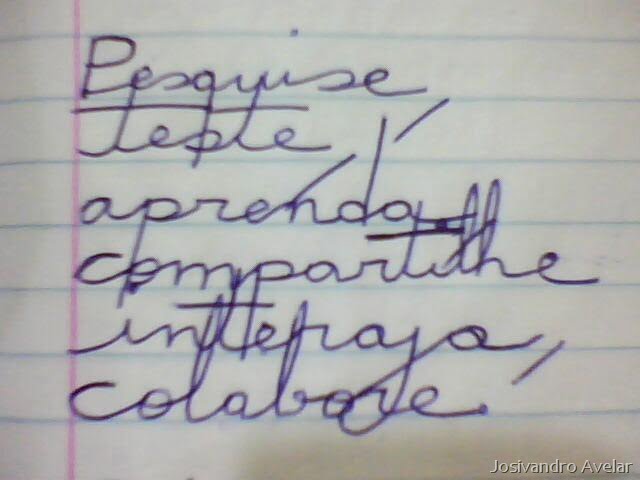 Pesquise,
teste,
aprenda,
compartilhe
interaja,
colabore
Josivandro Avelar